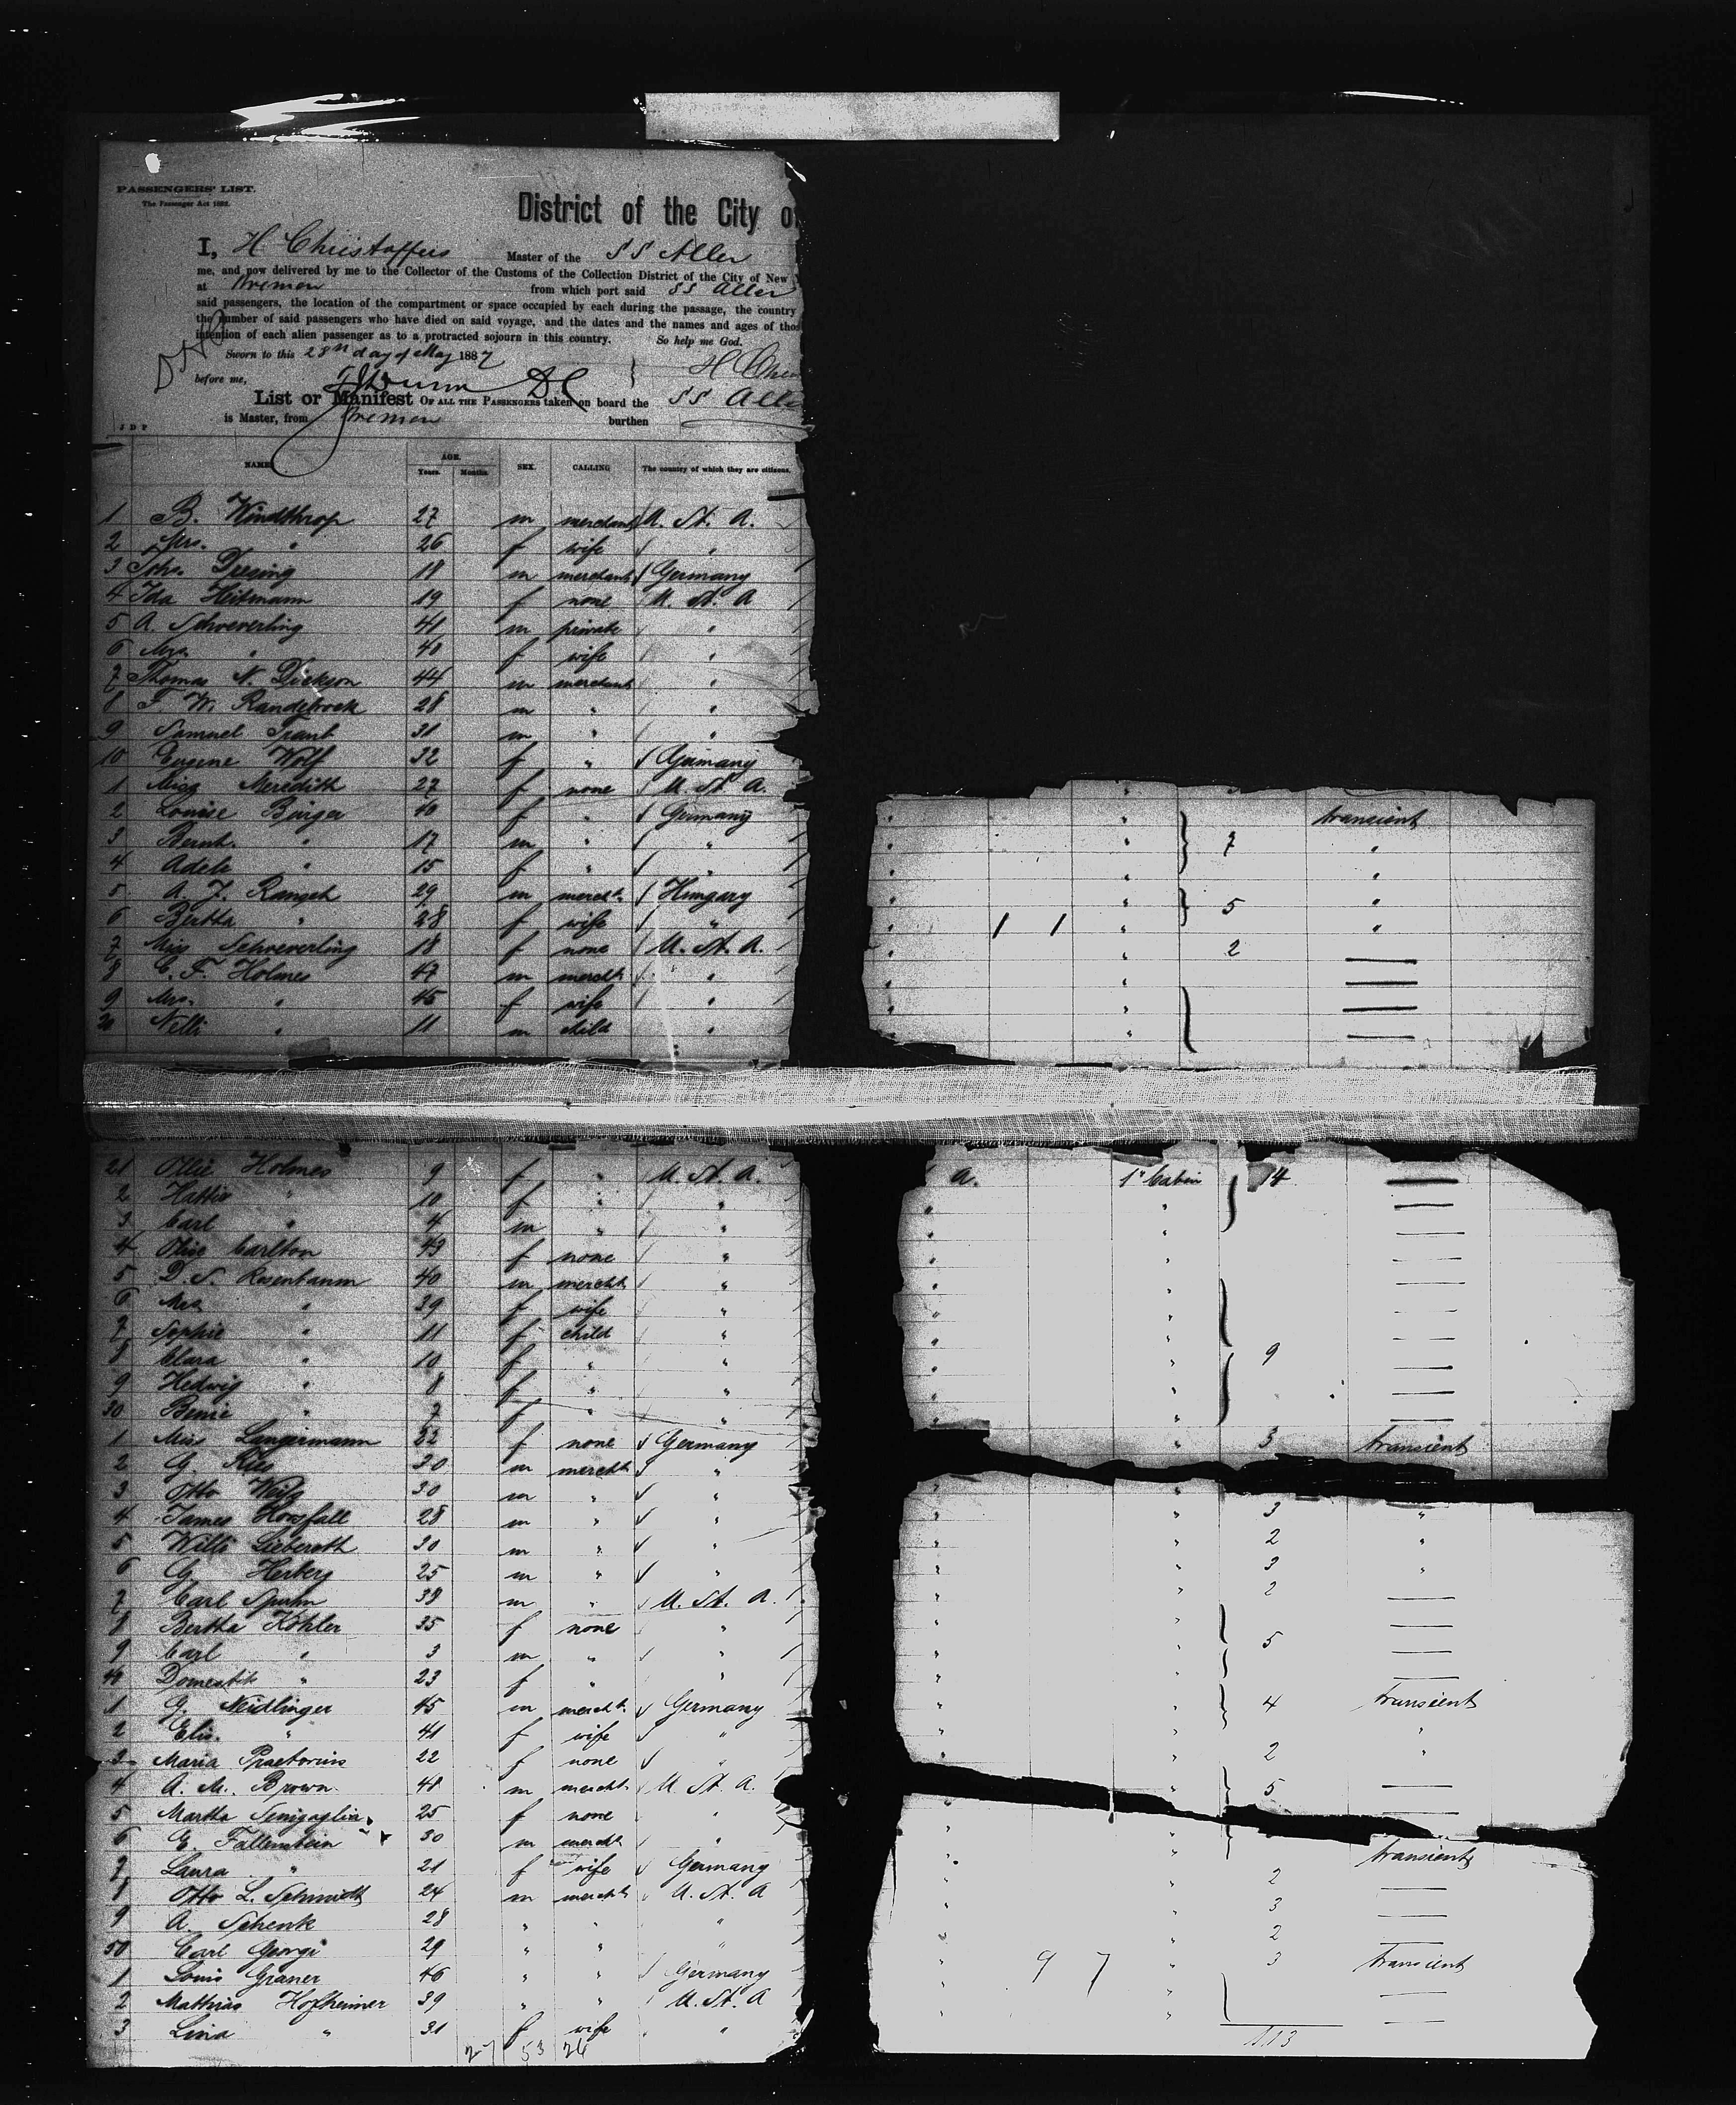 PASSENGERS' LIST.
The Passenger Act 1882.
District of the City of
I, H Christoffers Master of the SS Aller
me, and now delivered by me to the Collector of the Customs of the Collection District of the City of New
at Bremen from which port said SS Aller
said passengers, the location of the compartment or space occupied by each during the passage, the country
the number of said passengers who have died on said voyage, and the dates and the names and ages of thos
intention of each alien passenger as to a protracted sojourn in this country. So help me God.
Sworn to this 28th day of May 1887
before me, H Chri
List or Manifest OF ALL THE PASSENGERS taken on board the SS Alle
is Master, from Bremen burthen
J D P
NAME AGE. Years. Months. SEX. CALLING The country of which they are citizens.
1 B. Windthrop 27 m merchant U. St. A.
2 Mrs. " 26 f wife "
3 Johs. Deesing 18 m merchant Germany
4 Ida Heitmann 19 f none U. St. A
5 A. Schoeverling 41 m private "
6 Mrs. " 40 f wife "
7 Thomas N. Dickson 44 m merchant "
8 F. W. Randebrock 28 m " "
9 Samuel Traub 31 m " "
10 Eugene Wolf 32 f " Germany
1 Miss Meredith 27 f none U. St. A.
2 Louise Binger 40 f " Germany " " transient
3 Bernh. " 17 m " " " " 7 "
4 Adele " 15 f " " " " "
5 A. J. Rangeh 29 m mercht. Hungary " " 5 "
6 Bertha " 28 f wife " " 1 1 " "
7 Miss Schoeverling 18 f none U. St. A. " " 2 —
8 C. F. Holmes 47 m mercht " " " —
9 Mrs. " 45 f wife " " " —
20 Nelli " 11 m child " " " —
21 Ollie Holmes 9 f " U. St. A. a. 1" Cabin 14 —
2 Hattie " 10 f " " " " —
3 Carl " 4 m " " " " —
4 Olive Carlton 43 f none " " " —
5 D. S. Rosenbaum 40 m mercht " " " —
6 Mrs " 39 f wife " " " —
7 Sophie " 11 f child " " " —
8 Clara " 10 f " " " " 9 —
9 Hedwig " 8 f " " " " —
30 Benie " 7 f " " " " —
1 Miss Lengermann 22 f none Germany " 3 transient
2 G. Kies 30 m mercht " " "
3 Otto Weitz 30 m " " " " 3 "
4 James Horsfall 28 m " " " " 2 "
5 Willi Lieberoth 30 m " " " " 3 "
6 G. Herberg 25 m " " " " 2
7 Carl Spuhn 38 m " U. St. A. " " —
8 Bertha Köhler 35 f none " " " 5 —
9 Carl " 3 m " " " " —
40 Domestik " 23 f " " " "
1 G. Neidlinger 45 m mercht. Germany " " 4 transient
2 Elis. " 41 f wife " " " "
3 Maria Praetorius 22 f none " " 2 "
4 A. M. Brown 48 m mercht. U. St. A. " 5 —
5 Martha Senigaglia 25 f none " " " —
6 E. Fallenstein 30 m mercht " " "
7 Laura " 21 f wife Germany " " transient
8 Otto L. Schmidt 24 m mercht U. St. A " " 2 —
9 A. Schenk 28 " " " " " 3 —
50 Carl Georgi 29 " " " " " 2 —
1 Louis Graner 46 " " Germany " 9 7 " 3 transient
2 Mathias Hofheimer 39 " " U. St. A " " —
3 Lina " 31 f wife " " " —
27 53 26 113